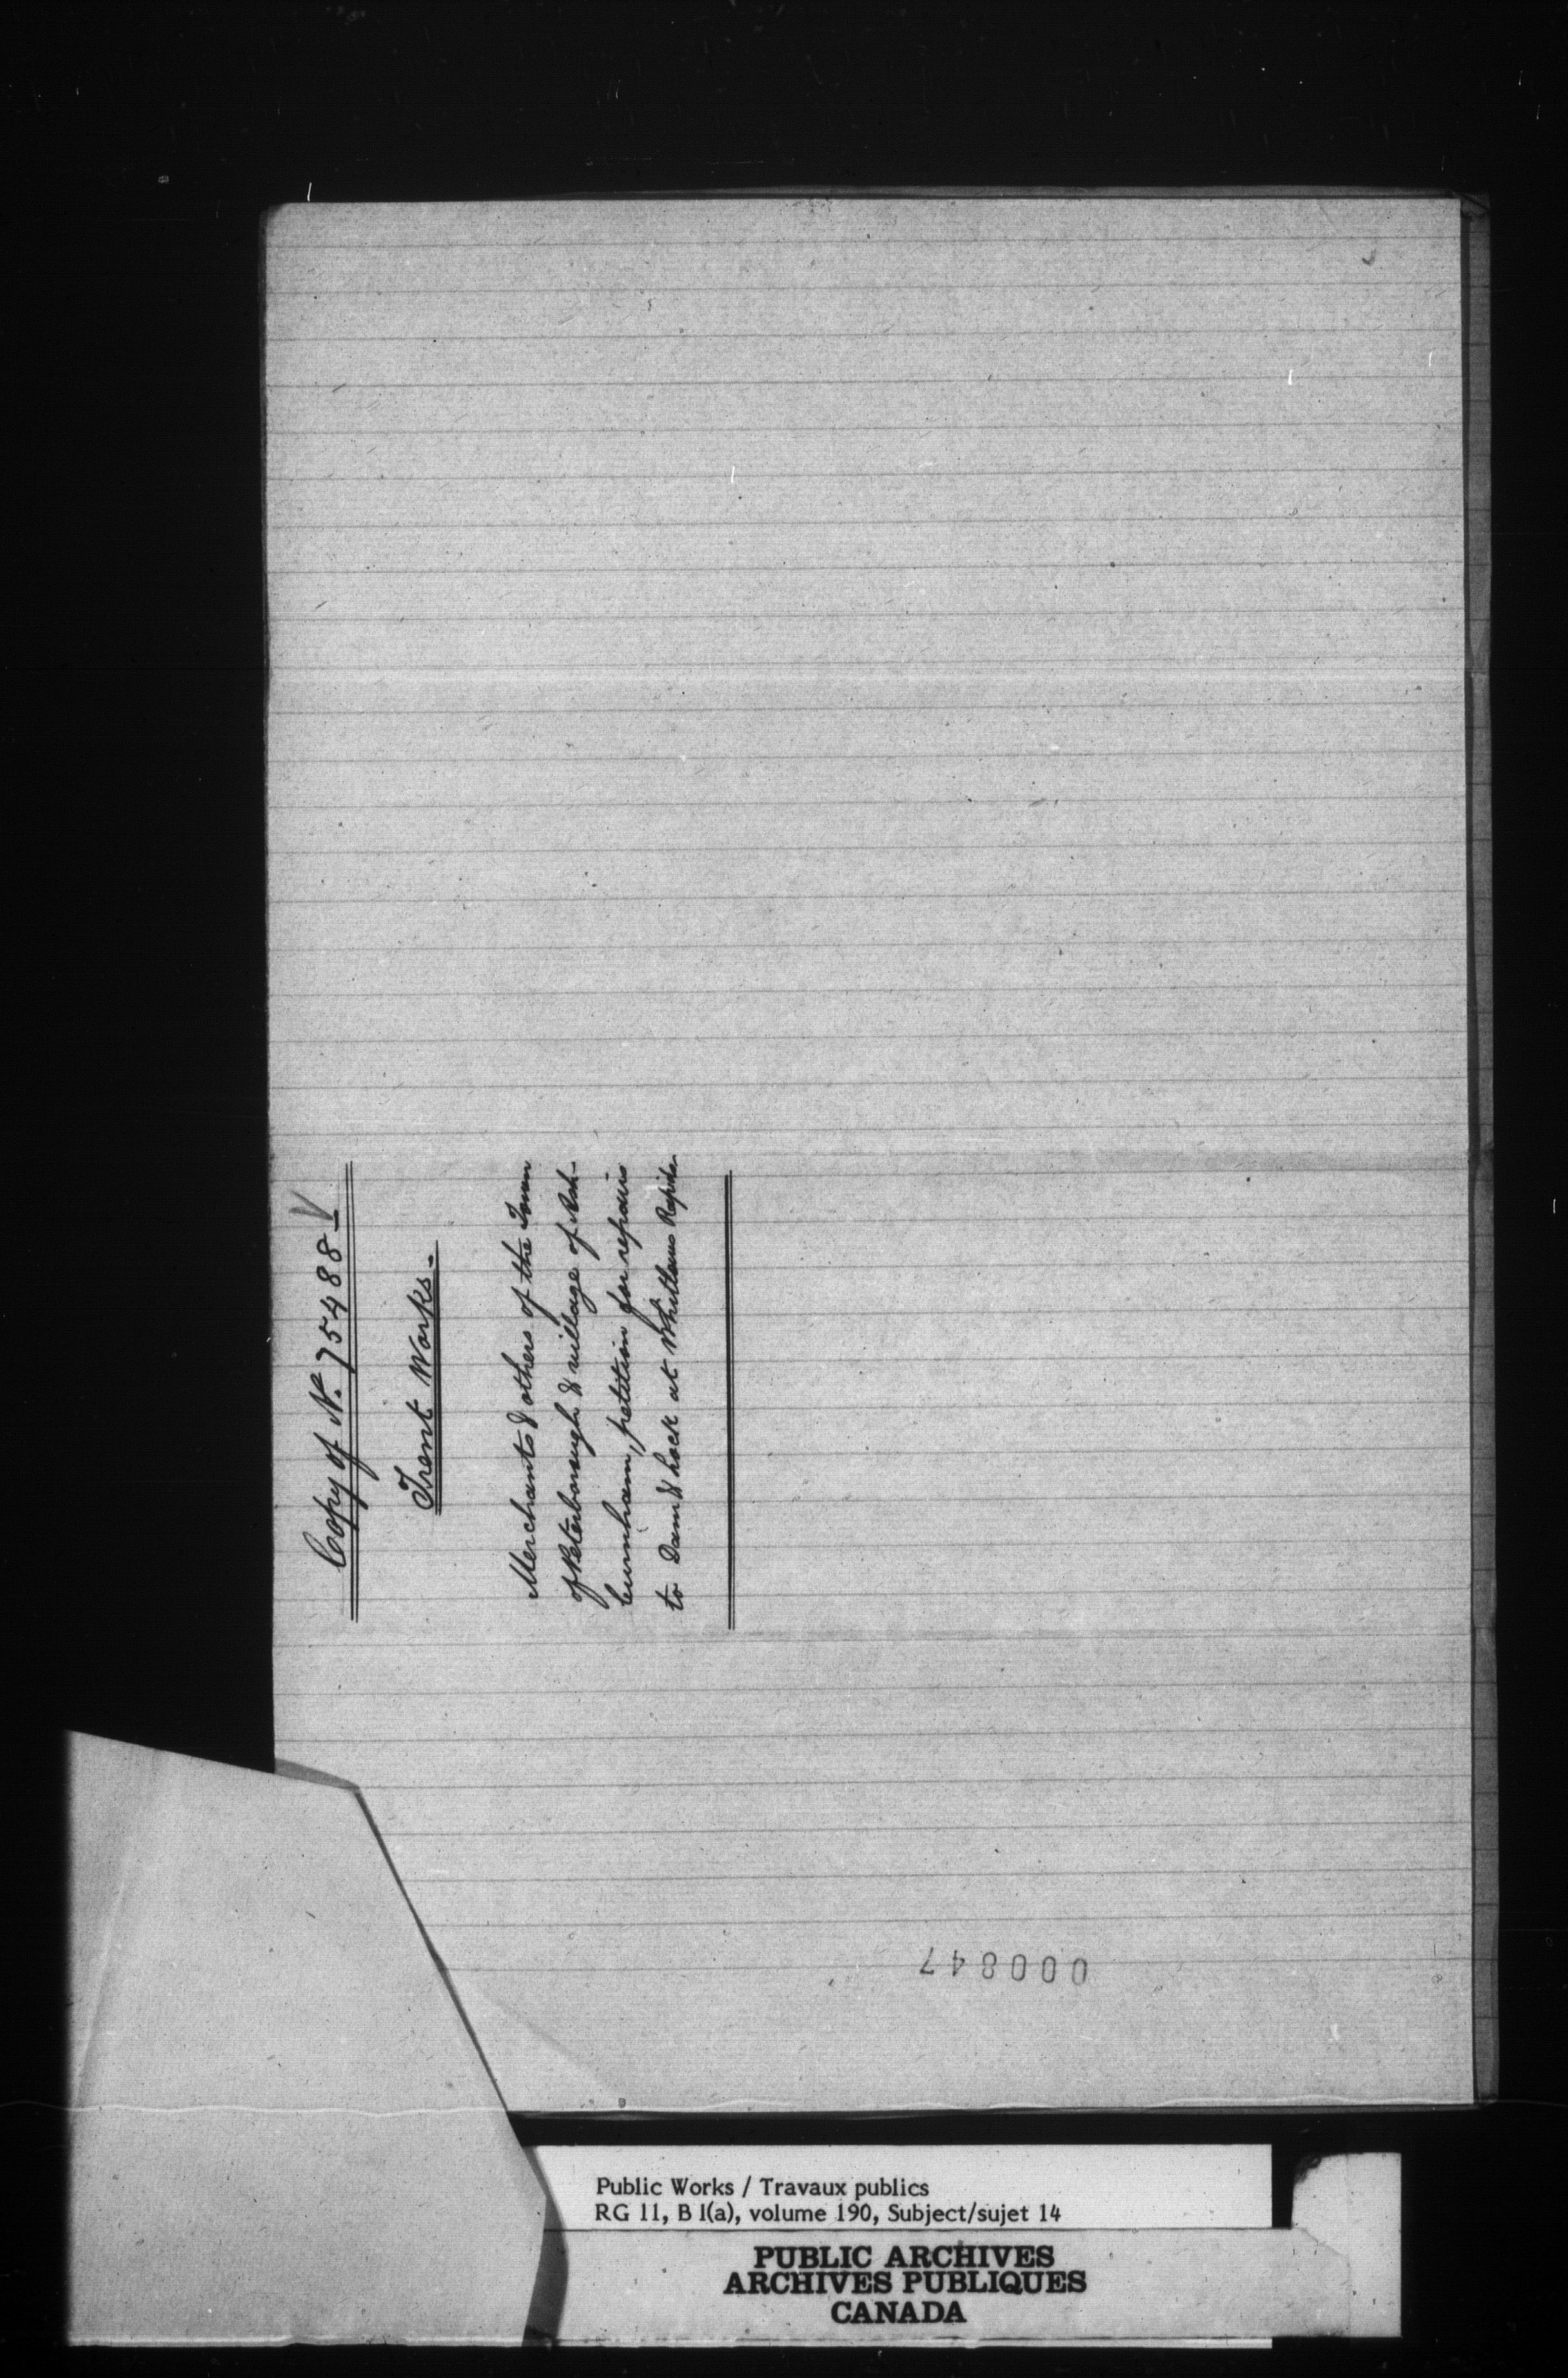 Copy of No. 75488 V
Trent Works.
Merchants & others of the Town
of Peterborough & village of Ash-
burnham, petition for repairs
to Dam & Lock at Whitlaws Rapids.
000847
Public Works / Travaux publics
RG 11, B 1(a), volume 190, Subject/sujet 14
PUBLIC ARCHIVES
ARCHIVES PUBLIQUES
CANADA